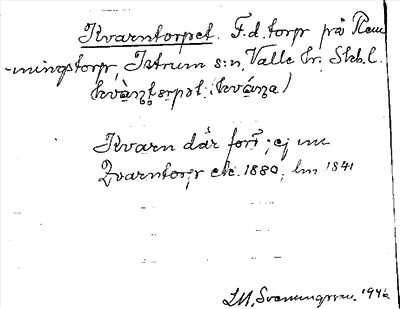 Kvarntorpet. F.d. torp på Rem
-mingstorp, Istrum s:n, Valle hr. Skb.l.
kvà̱ṇṭɔrpət (kvá̱ṇa)
Kvarn där förr; ej nu
Qvarntorp etc. 1880; lm 1841
1946.